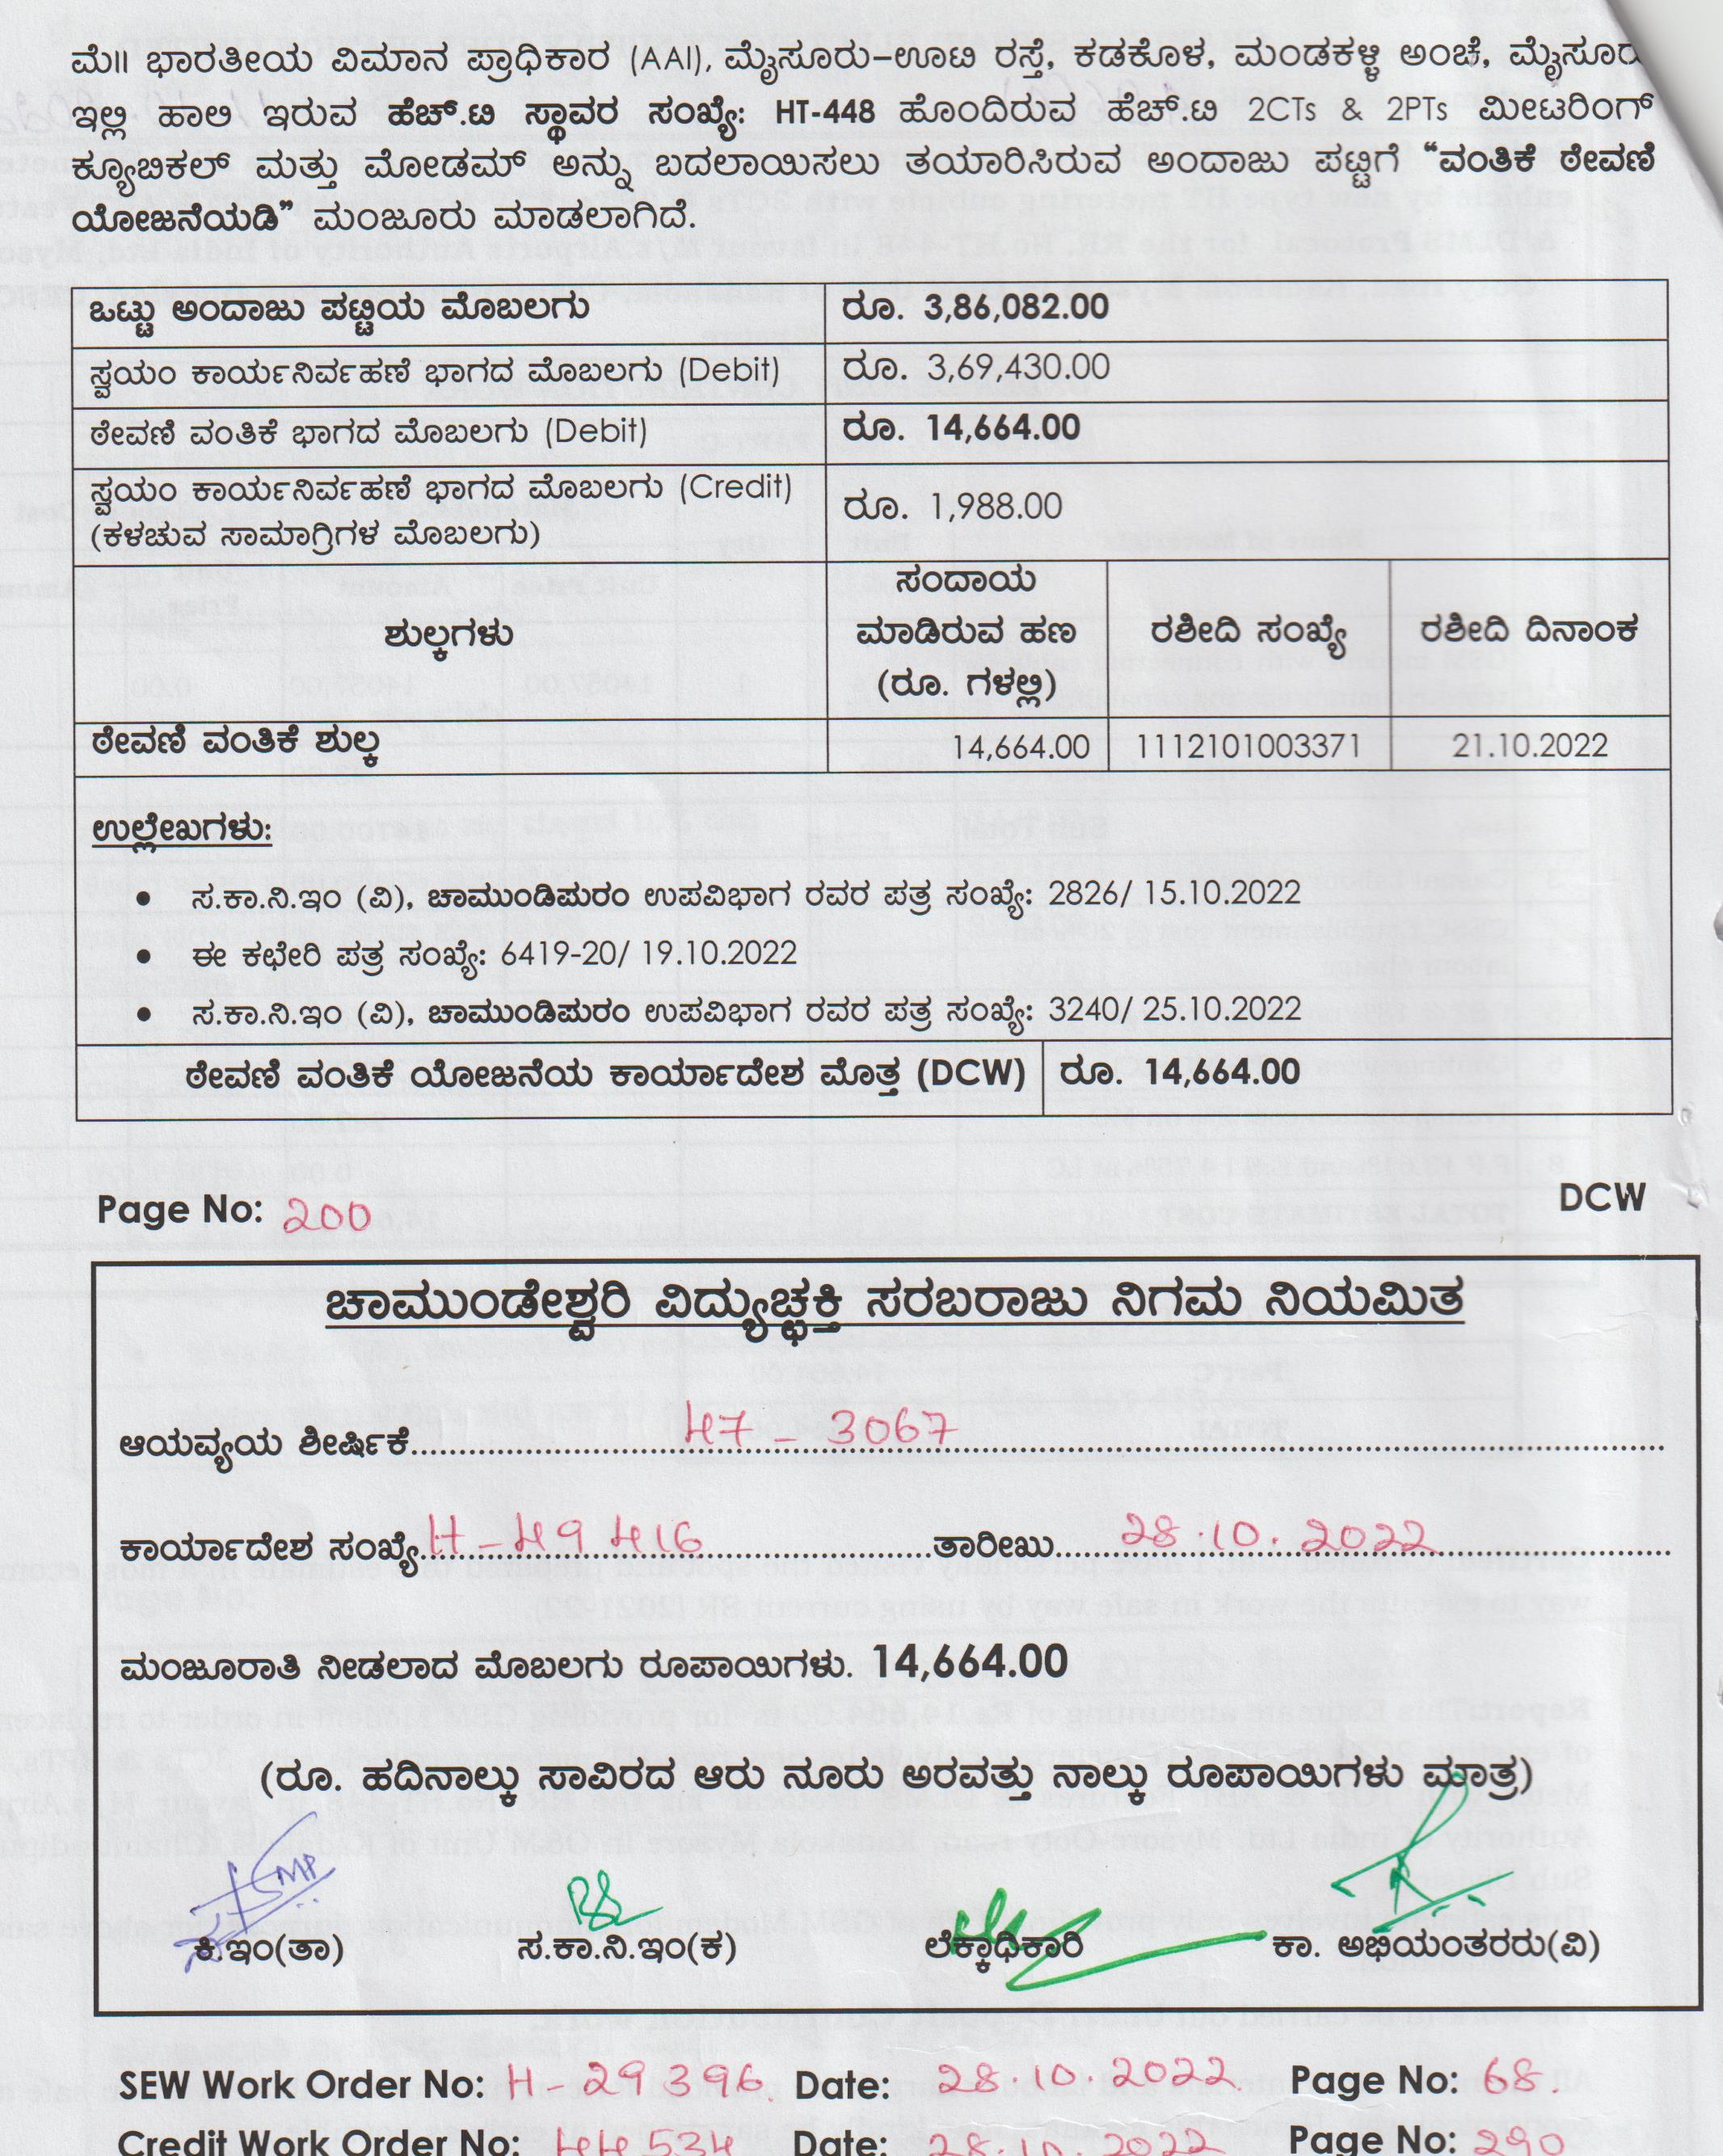 ಮೆ॥ ಭಾರತೀಯ ವಿಮಾನ ಪ್ರಾಧಿಕಾರ (AAI), ಮೈಸೂರು-ಊಟಿ ರಸ್ತೆ, ಕಡಕೊಳ, ಮಂಡಕಳ್ಳಿ ಅಂಚೆ, ಮೈಸೂರು
ಇಲ್ಲಿ ಹಾಲಿ ಇರುವ ಹೆಚ್.ಟಿ ಸ್ಥಾವರ ಸಂಖ್ಯೆ: HT-448 ಹೊಂದಿರುವ ಹೆಚ್.ಟಿ 2CTs & 2PTs ಮೀಟರಿಂಗ್
ಕ್ಯೂಬಿಕಲ್ ಮತ್ತು ಮೋಡಮ್ ಅನ್ನು ಬದಲಾಯಿಸಲು ತಯಾರಿಸಿರುವ ಅಂದಾಜು ಪಟ್ಟಿಗೆ “ವಂತಿಕೆ ಠೇವಣಿ
ಯೋಜನೆಯಡಿ” ಮಂಜೂರು ಮಾಡಲಾಗಿದೆ.
ಒಟ್ಟು ಅಂದಾಜು ಪಟ್ಟಿಯ ಮೊಬಲಗು ರೂ. 3,86,082.00
ಸ್ವಯಂ ಕಾರ್ಯನಿರ್ವಹಣೆ ಭಾಗದ ಮೊಬಲಗು (Debit) ರೂ. 3,69,430.00
ಠೇವಣಿ ವಂತಿಕೆ ಭಾಗದ ಮೊಬಲಗು (Debit) ರೂ. 14,664.00
ಸ್ವಯಂ ಕಾರ್ಯನಿರ್ವಹಣೆ ಭಾಗದ ಮೊಬಲಗು (Credit) ರೂ. 1,988.00
(ಕಳಚುವ ಸಾಮಾಗ್ರಿಗಳ ಮೊಬಲಗು)
ಶುಲ್ಕಗಳು
ಸಂದಾಯ
ಮಾಡಿರುವ ಹಣ
(ರೂ. ಗಳಲ್ಲಿ)
ರಶೀದಿ ಸಂಖ್ಯೆ
ರಶೀದಿ ದಿನಾಂಕ
ಠೇವಣಿ ವಂತಿಕೆ ಶುಲ್ಕ 14,664.00 1112101003371 21.10.2022
ಉಲ್ಲೇಖಗಳು:
• ಸ.ಕಾ.ನಿ.ಇಂ (ವಿ), ಚಾಮುಂಡಿಪುರಂ ಉಪವಿಭಾಗ ರವರ ಪತ್ರ ಸಂಖ್ಯೆ: 2826/ 15.10.2022
• ಈ ಕಛೇರಿ ಪತ್ರ ಸಂಖ್ಯೆ: 6419-20/ 19.10.2022
• ಸ.ಕಾ.ನಿ.ಇಂ (ವಿ), ಚಾಮುಂಡಿಪುರಂ ಉಪವಿಭಾಗ ರವರ ಪತ್ರ ಸಂಖ್ಯೆ: 3240/ 25.10.2022
ಠೇವಣಿ ವಂತಿಕೆ ಯೋಜನೆಯ ಕಾರ್ಯಾದೇಶ ಮೊತ್ತ (DCW) ರೂ. 14,664.00
Page No: 200 DCW
ಚಾಮುಂಡೇಶ್ವರಿ ವಿದ್ಯುಚ್ಛಕ್ತಿ ಸರಬರಾಜು ನಿಗಮ ನಿಯಮಿತ
ಆಯವ್ಯಯ ಶೀರ್ಷಿಕೆ 47 - 3067
ಕಾರ್ಯಾದೇಶ ಸಂಖ್ಯೆ H - 49 416 ತಾರೀಖು 28.10.2022
ಮಂಜೂರಾತಿ ನೀಡಲಾದ ಮೊಬಲಗು ರೂಪಾಯಿಗಳು. 14,664.00
(ರೂ. ಹದಿನಾಲ್ಕು ಸಾವಿರದ ಆರು ನೂರು ಅರವತ್ತು ನಾಲ್ಕು ರೂಪಾಯಿಗಳು ಮಾತ್ರ)
ಕಿ.ಇಂ(ತಾ) ಸ.ಕಾ.ನಿ.ಇಂ(ಕ) ಲೆಕ್ಕಾಧಿಕಾರಿ ಕಾ. ಅಭಿಯಂತರರು(ವಿ)
SEW Work Order No: H - 29396 Date: 28.10.2022. Page No: 68.
Credit Work Order No: 44534 Date: 28.10.2022 Page No: 290